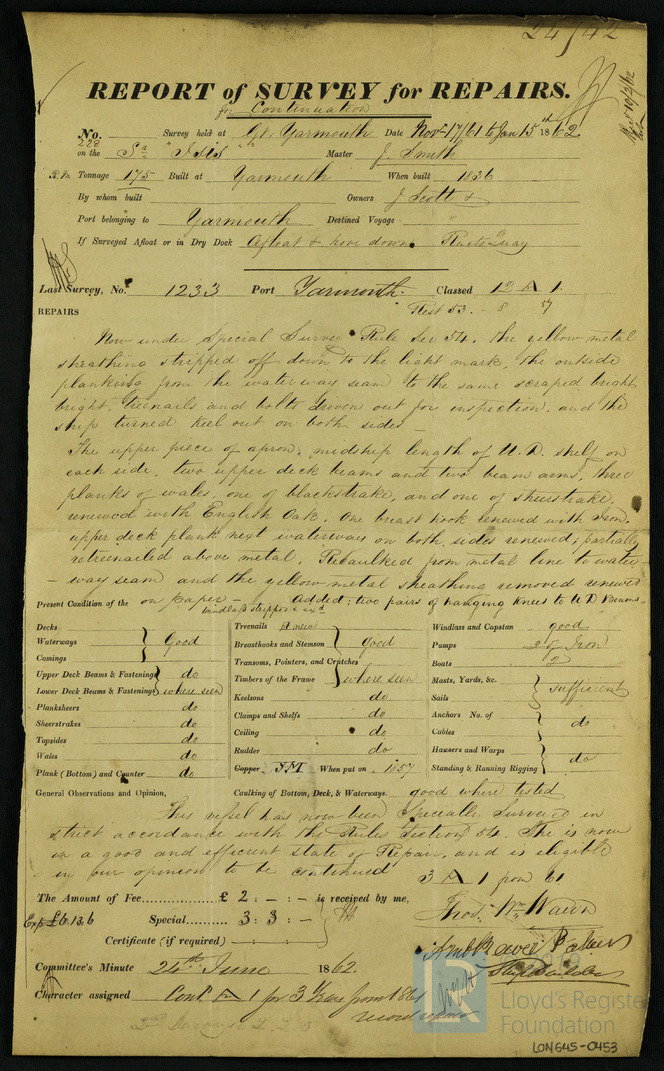 24/42
REPORT of SURVEY for REPAIRS.
for Continuation
No. 228 Survey held at Gt. Yarmouth Date Novr 17/61 to Jan 15th 1862
on the "Isis" Master J. Smith
Tonnage 175 Built at Yarmouth When built 1836
By whom built Owners J Scott +
Port belonging to Yarmouth Destined Voyage
If Surveyed Afloat or in Dry Dock Afloat & hove down
Last Survey, No. 1233 Port Yarmouth Classed 12 A 1.
Rest 53. - 8 57
REPAIRS
Now under Special Survey Rule Sec 54. the yellow metal
sheathing stripped off down to the light mark, the outside
planking from the waterway seam to the same scraped bright
bright, treenails and bolts driven out for inspection, and the
ship turned keel out on both sides -
The upper piece of apron, midship length of U.D. shelf on
each side, two upper deck beams and two beam arms, three
planks of wales, one of blackstrake, and one of sheerstrake,
renewed with English Oak. One breast hook renewed with Iron.
upper deck plank next waterways on both sides renewed; partially
retreenailed above metal. Recaulked from metal line to water-
- way seam and the yellow metal sheathing removed renewed
on paper - Added; two pairs of hanging knees to U D Beams.
windlass stripped
Present Condition of the
Decks
Waterways } Good
Comings
Upper Deck Beams & Fastenings } do
Lower Deck Beams & Fastenings } where seen
Planksheers do
Sheerstrakes do
Topsides do
Wales do
Plank (Bottom) and Counter do
Treenails
Breasthooks and Stemson } good
Transoms, Pointers, and Crutches
Timbers of the Frame } where seen
Keelsons do
Clamps and Shelfs do
Ceiling do
Rudder do
Copper Y.M. When put on 1857
Caulking of Bottom, Deck, & Waterways. good where tested
Windlass and Capstan good
Pumps 2 of Iron
Boats 2
Masts, Yards, &c.
Sails } sufficient
Anchors No. of
Cables } do
Hawsers and Warps
Standing & Running Rigging } do
General Observations and Opinion,
This vessel has now been Specially Surveyed in
strict accordance with the Rules Section 54. She is now
in a good and efficient state of Repair, and is eligible
in our opinion to be continued
3 A 1 from 61
The Amount of Fee £ 2 : - : - is received by me,
Exps £6 13.6 Special 3 : 3 : -
Certificate (if required) - : - : -
Thos. Wm
Shipbuilder
Committee's Minute 24th June 1862.
Character assigned Cont A 1 for 3 Years from 1861
Lloyd's Register
Foundation
LON645-0453